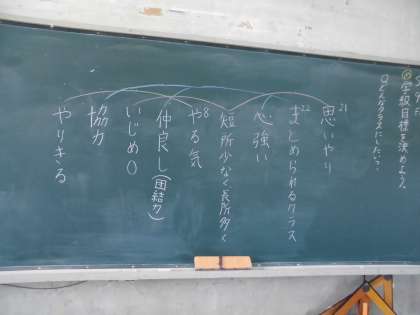 ◎学級目標を決めよう。
Q.どんなクラスにしたい？
思いやり 21
まとめられるクラス 22
心強い
短所少なく長所多く
やる気 8
仲良し(団結力)
いじめ0
協力
やりきる